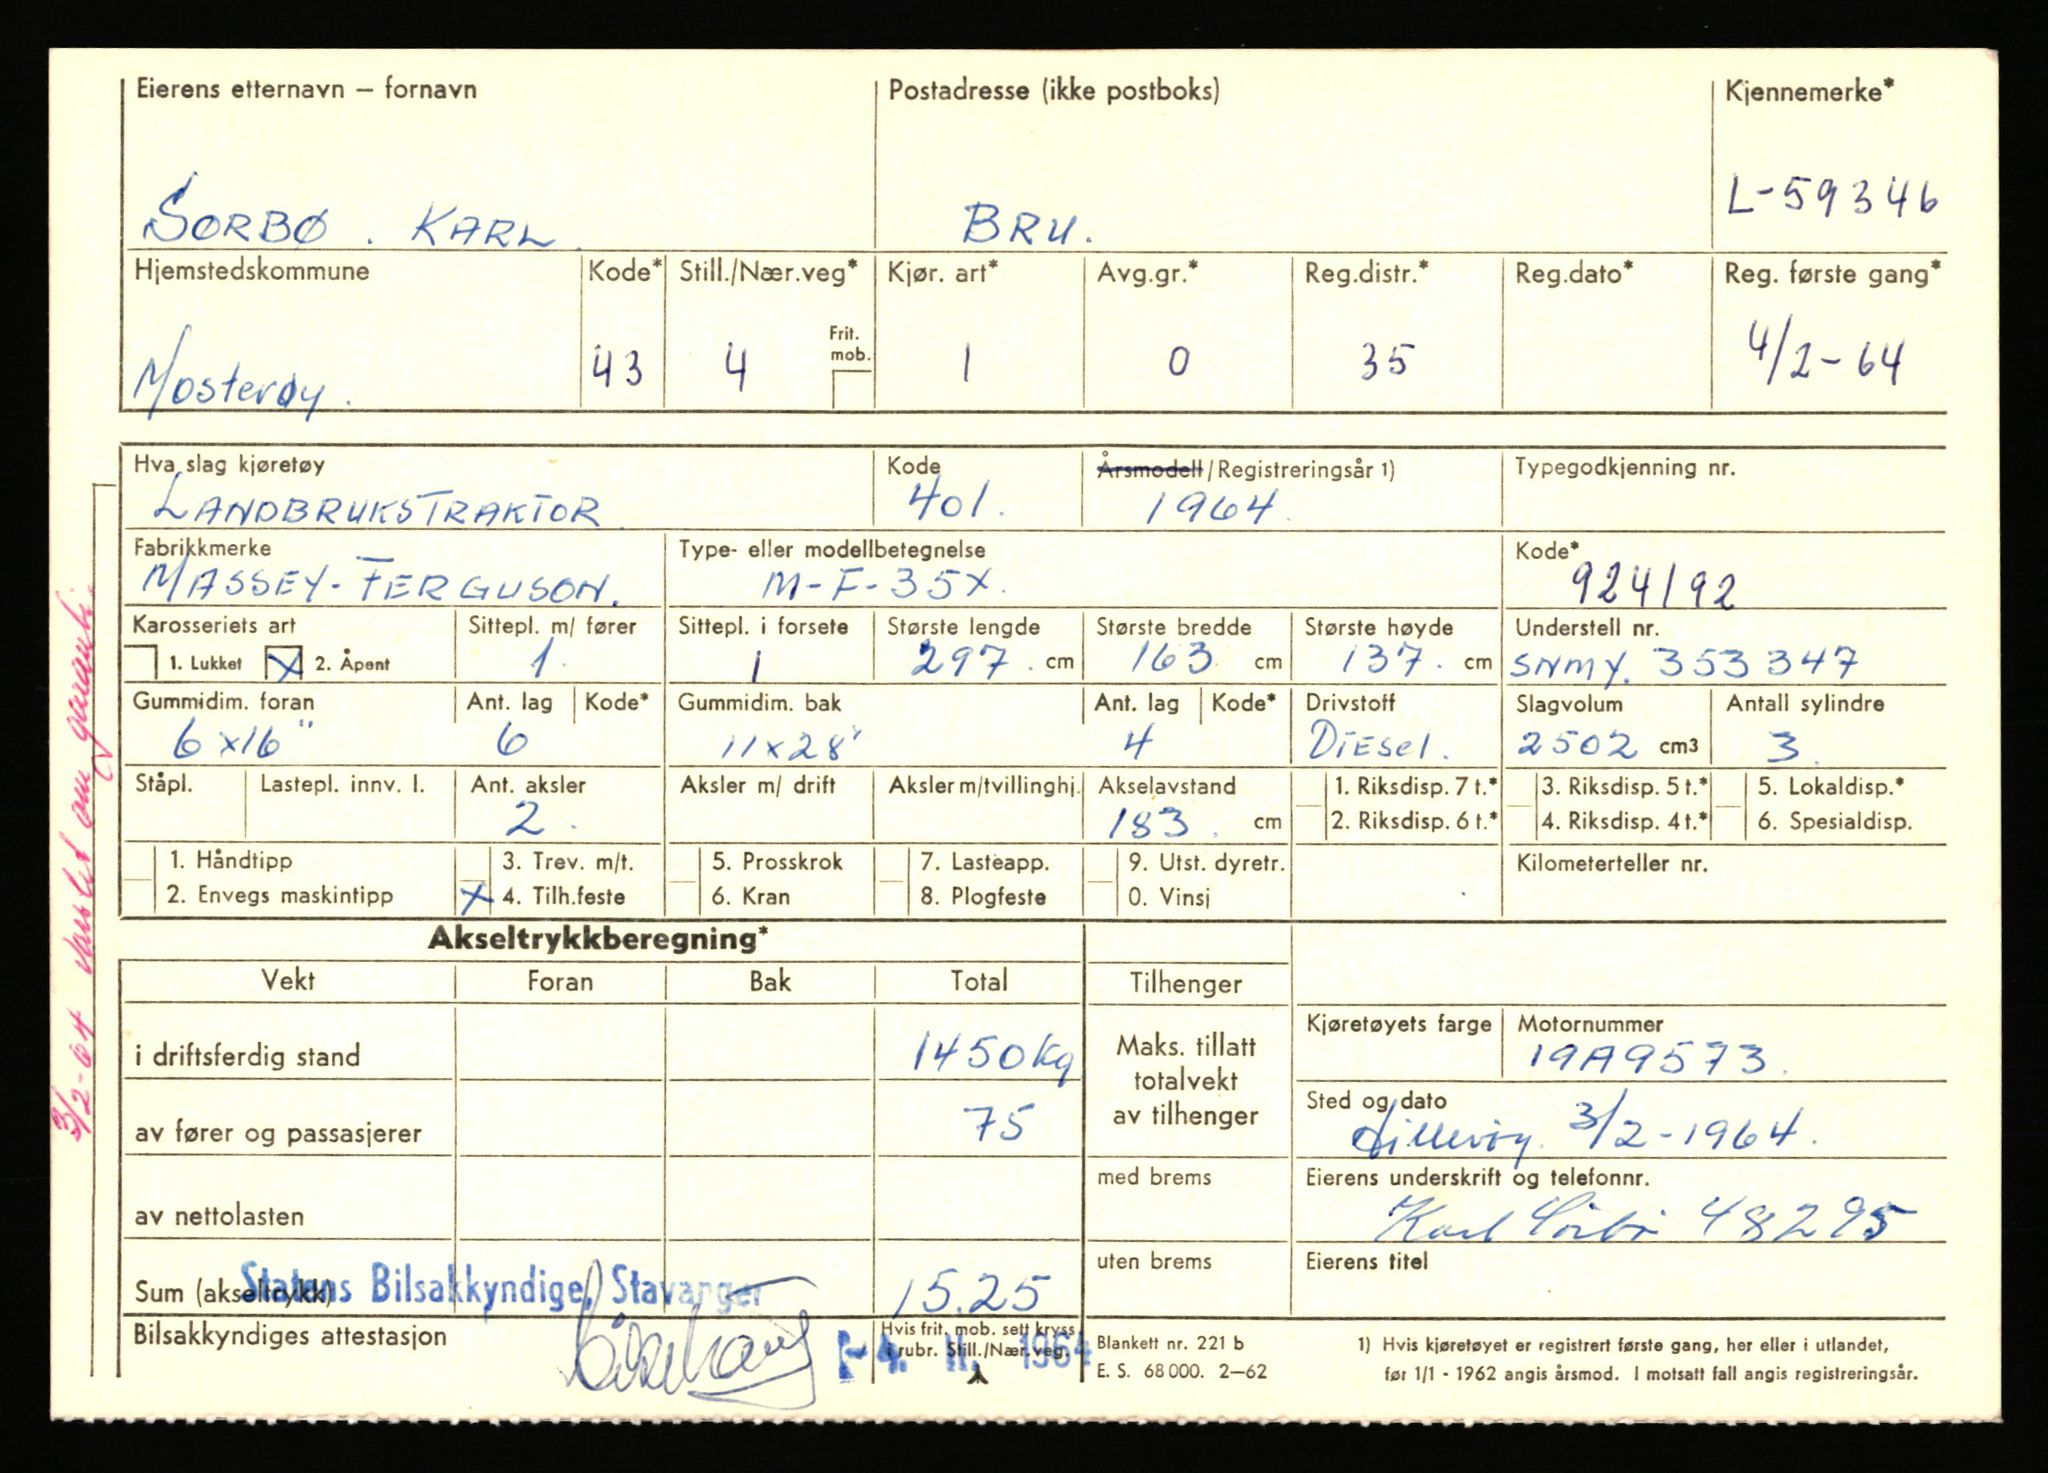 Eierens etternavn – fornavn Postadresse (ikke postboks) Kjennemerke*
SORBØ. KARL. BRU. L-59346
Hjemstedskommune Kode* Still./Nær.veg* Kjør. art* Avg.gr.* Reg.distr.* Reg.dato* Reg. første gang*
Frit. mob.
Mosterøy. 43 4 1 0 35 4/2-64
Hva slag kjøretøy Kode Årsmodell/Registreringsår 1) Typegodkjenning nr.
LANDBRUKSTRAKTOR. 401. 1964.
Fabrikkmerke Type- eller modellbetegnelse Kode*
MASSEY-FERGUSON. M-F-35X. 924192
Karosseriets art Sittepl. m/ fører Sittepl. i forsete Største lengde Største bredde Største høyde Understell nr.
1. Lukket X 2. Åpent 1. 1 297. cm 163 cm 137. cm SNMY. 353347
Gummidim. foran Ant. lag Kode* Gummidim. bak Ant. lag Kode* Drivstoff Slagvolum Antall sylindre
6x16" 6 11x28" 4 Diesel. 2502 cm3 3.
Ståpl. Lastepl. innv. l. Ant. aksler Aksler m/ drift Aksler m/tvillinghj. Akselavstand 1. Riksdisp. 7 t.* 3. Riksdisp. 5 t.* 5. Lokaldisp.*
2. 183. cm 2. Riksdisp. 6 t.* 4. Riksdisp. 4 t.* 6. Spesialdisp.
1. Håndtipp 3. Trev. m/t. 5. Prosskrok 7. Lasteapp. 9. Utst. dyretr. Kilometerteller nr.
2. Envegs maskintipp X 4. Tilh.feste 6. Kran 8. Plogfeste 0. Vinsj
Akseltrykkberegning*
Vekt Foran Bak Total Tilhenger
Kjøretøyets farge Motornummer
i driftsferdig stand 1450 Kg Maks. tillatt 19A9573.
totalvekt
Sted og dato
av fører og passasjerer 75 av tilhenger Lillevøy 3/2-1964.
med brems Eierens underskrift og telefonnr.
av nettolasten Karl Sörbö 48295
uten brems Eierens titel
Sum (akseltrykk) 15.25
Statens Bilsakkyndige, Stavanger
Bilsakkyndiges attestasjon Hvis frit. mob. sett kryss Blankett nr. 221 b 1) Hvis kjøretøyet er registrert første gang, her eller i utlandet,
i rubr. Still./Nær.veg. E. S. 68 000. 2–62 før 1/1 - 1962 angis årsmod. I motsatt fall angis registreringsår.
-4. II. 1964
3/2-64 varslet om garanti.